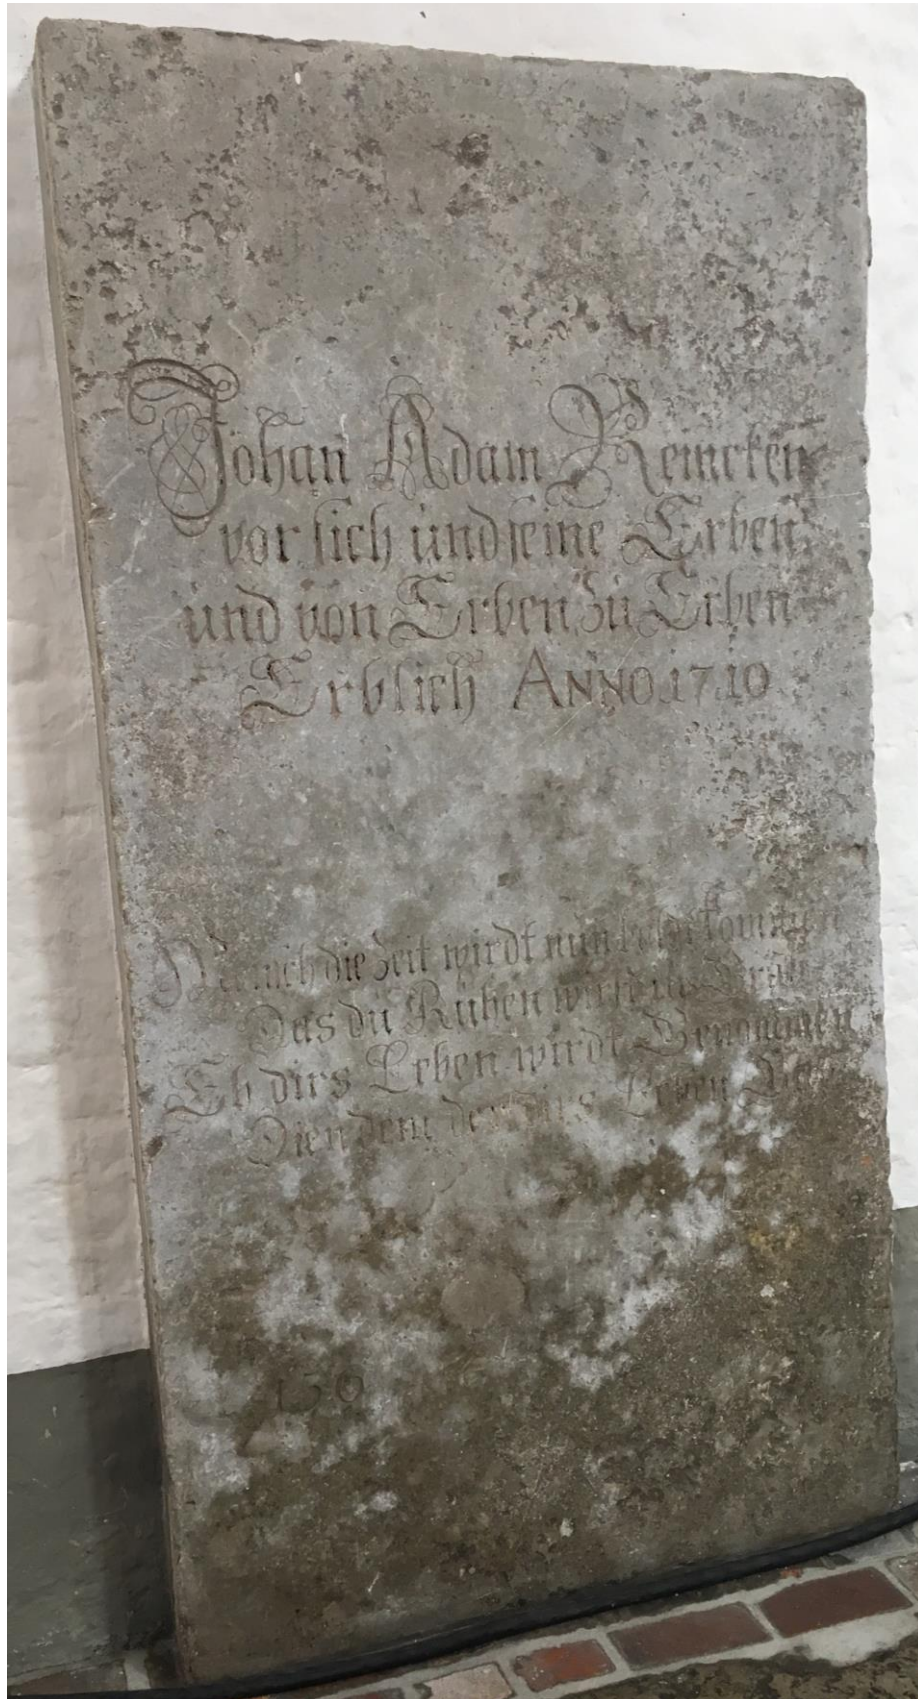 Johan Adam Reincken
vor sich und seine Erben
und von Erben zu Erben
Erblich ANNO 1710
die Zeit wirdt nun kommen
Das du Ruhen
Eh dirs Leben wirdt Genommen
Dien dem, der dirs Leben
130